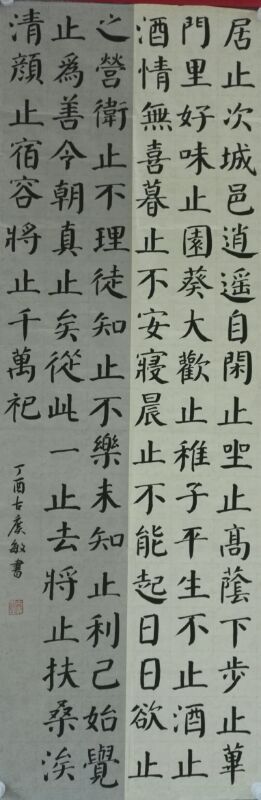 居止次城邑逍遥自閑止坐止髙蔭下步止蓽
門里好味止園葵大歡止稚子平生不止酒止
酒情無喜暮止不安寢晨止不能起日日欲止
之營衛止不理徒知止不樂未知止利己始覺
止爲善今朝真止矣從此一止去將止扶桑涘
清顔止宿容將止千萬祀
丁酉古敏書